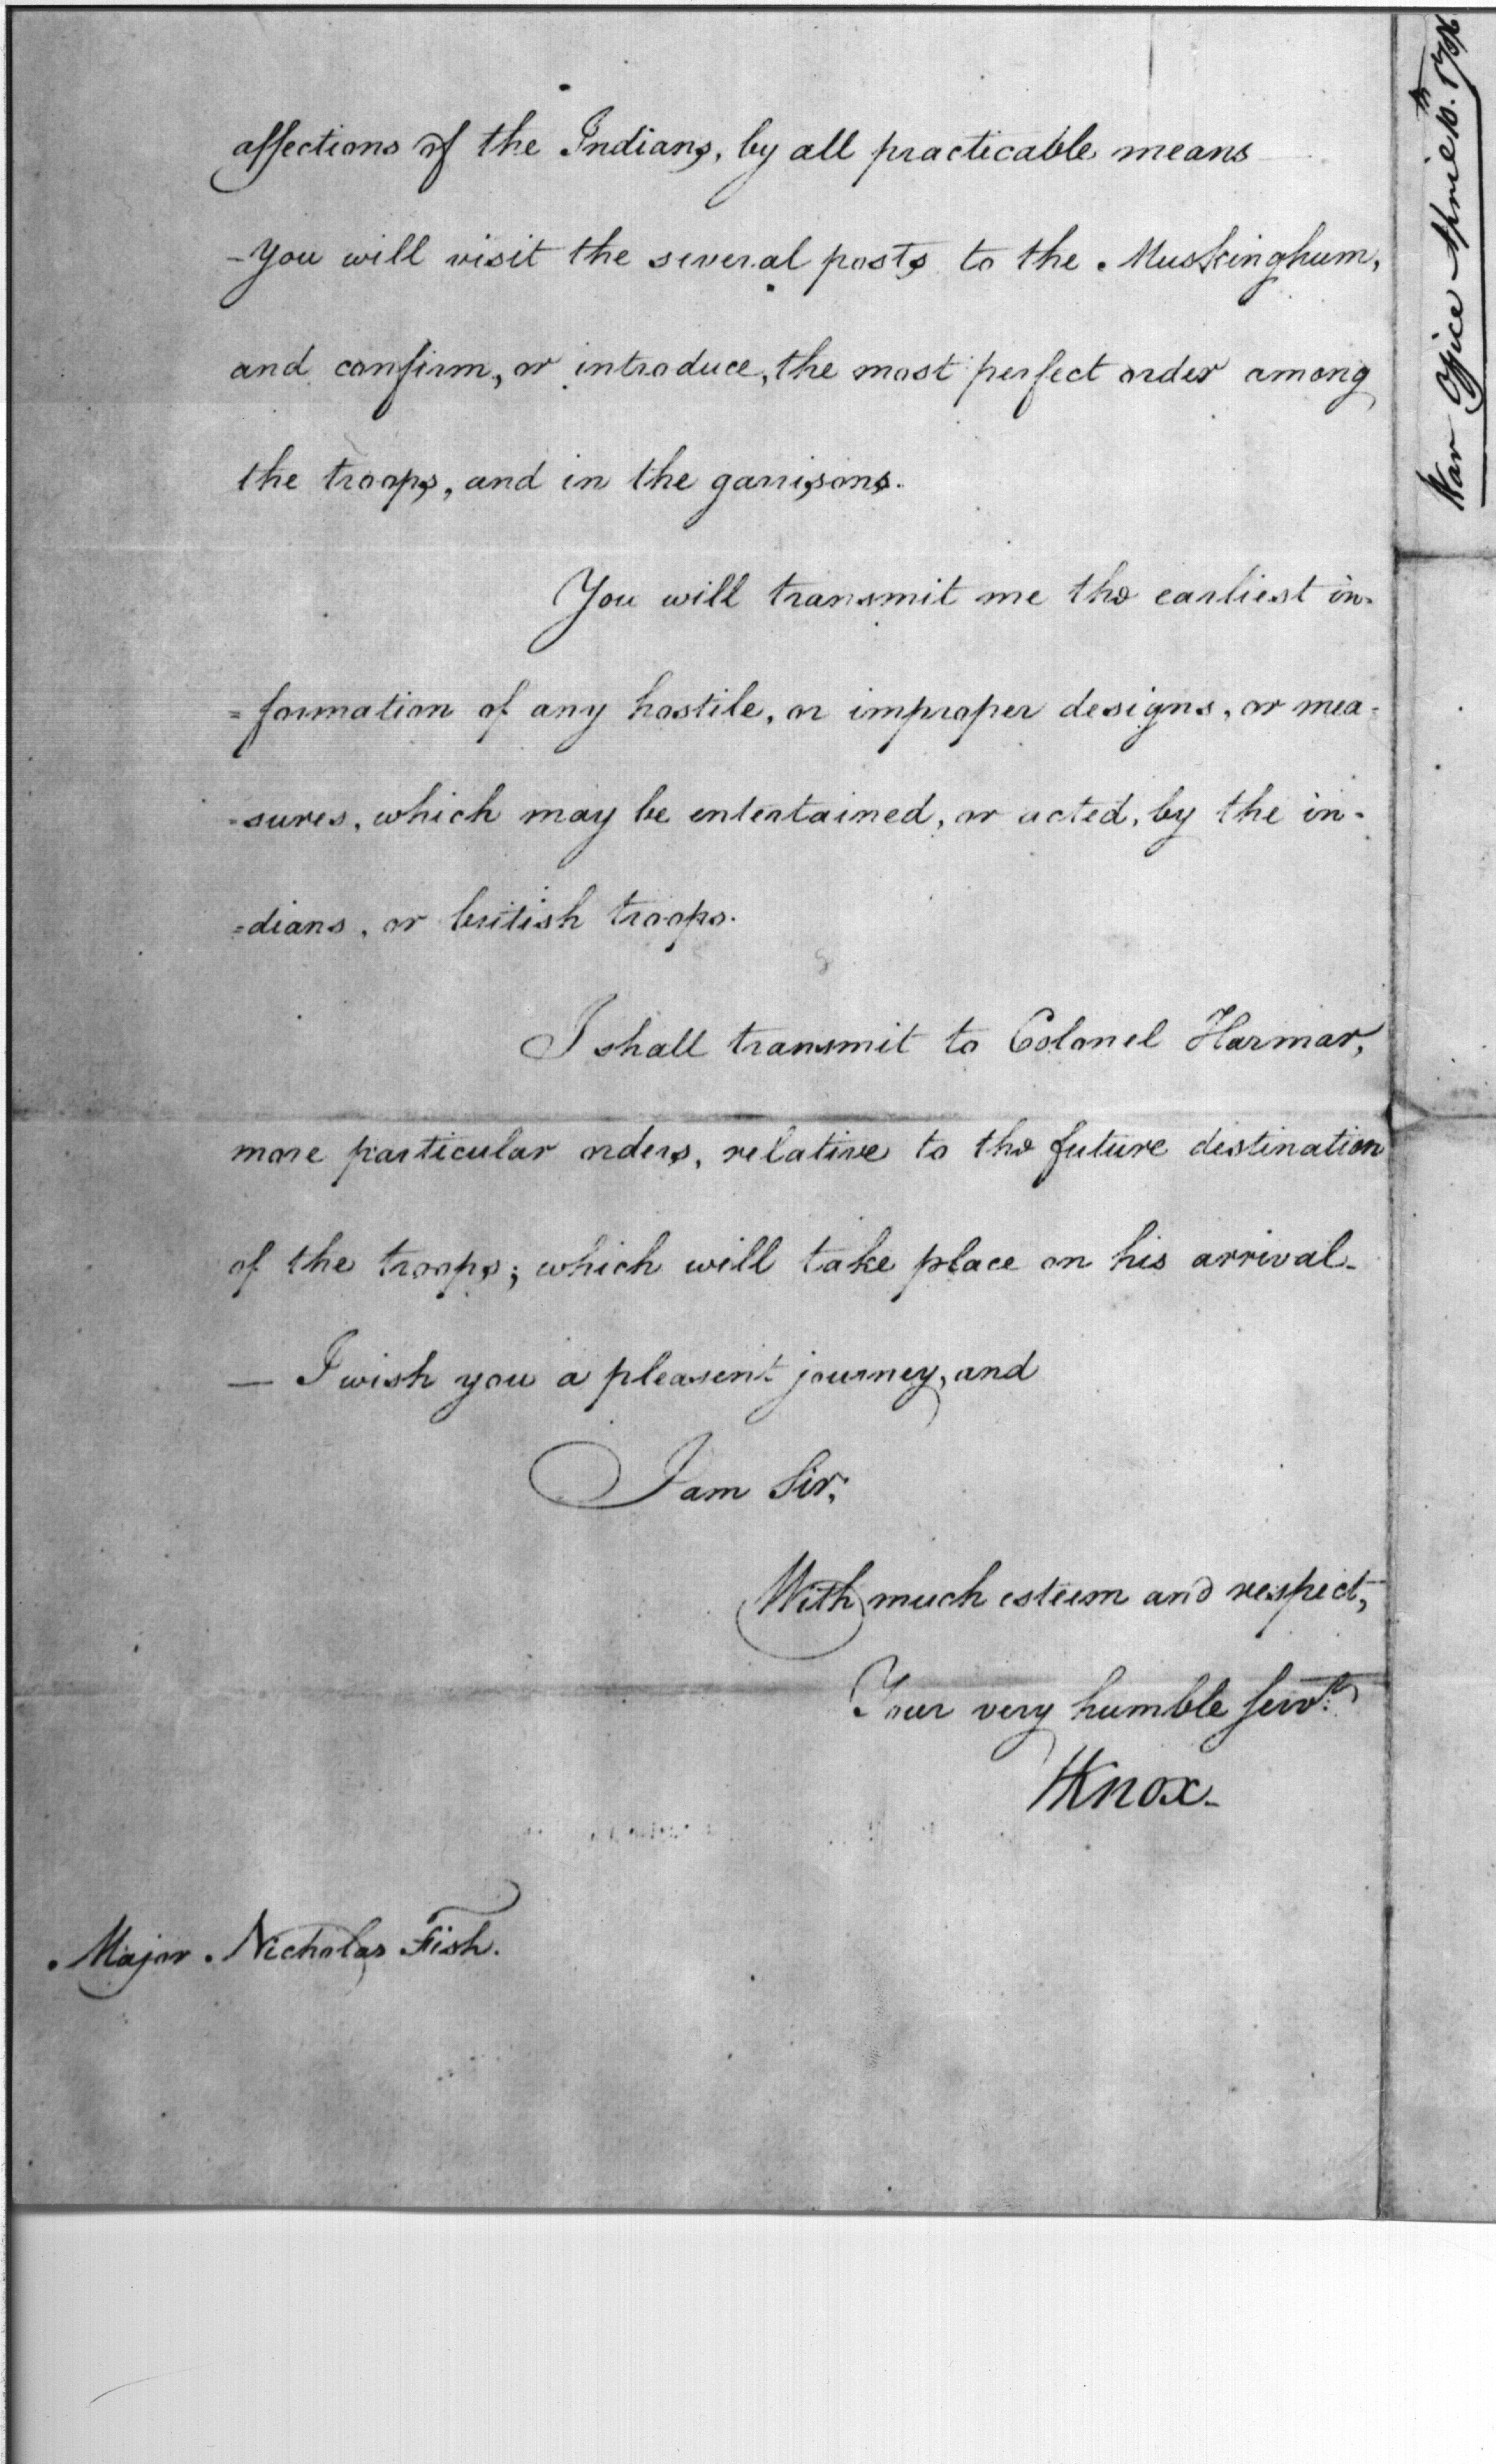 affections of the Indians, by all practicable means
- You will visit the several posts to the Muskinghum,
and confirm, or introduce, the most perfect order among
the troops, and in the garrisons.
You will transmit me the earliest in-
=formation of any hostile, or improper designs, or mea-
-sures, which may be entertained, or acted, by the in-
=dians, or british troops.
I shall transmit to Colonel Harmar,
more particular orders, relative to the future distination
of the troops; which will take place on his arrival-
— I wish you a pleasent journey, and
I am Sir,
With much esteem and respect,
Your very humble servt.
HKnox-
Major Nicholas Fish.
War Office April 10.th 1786